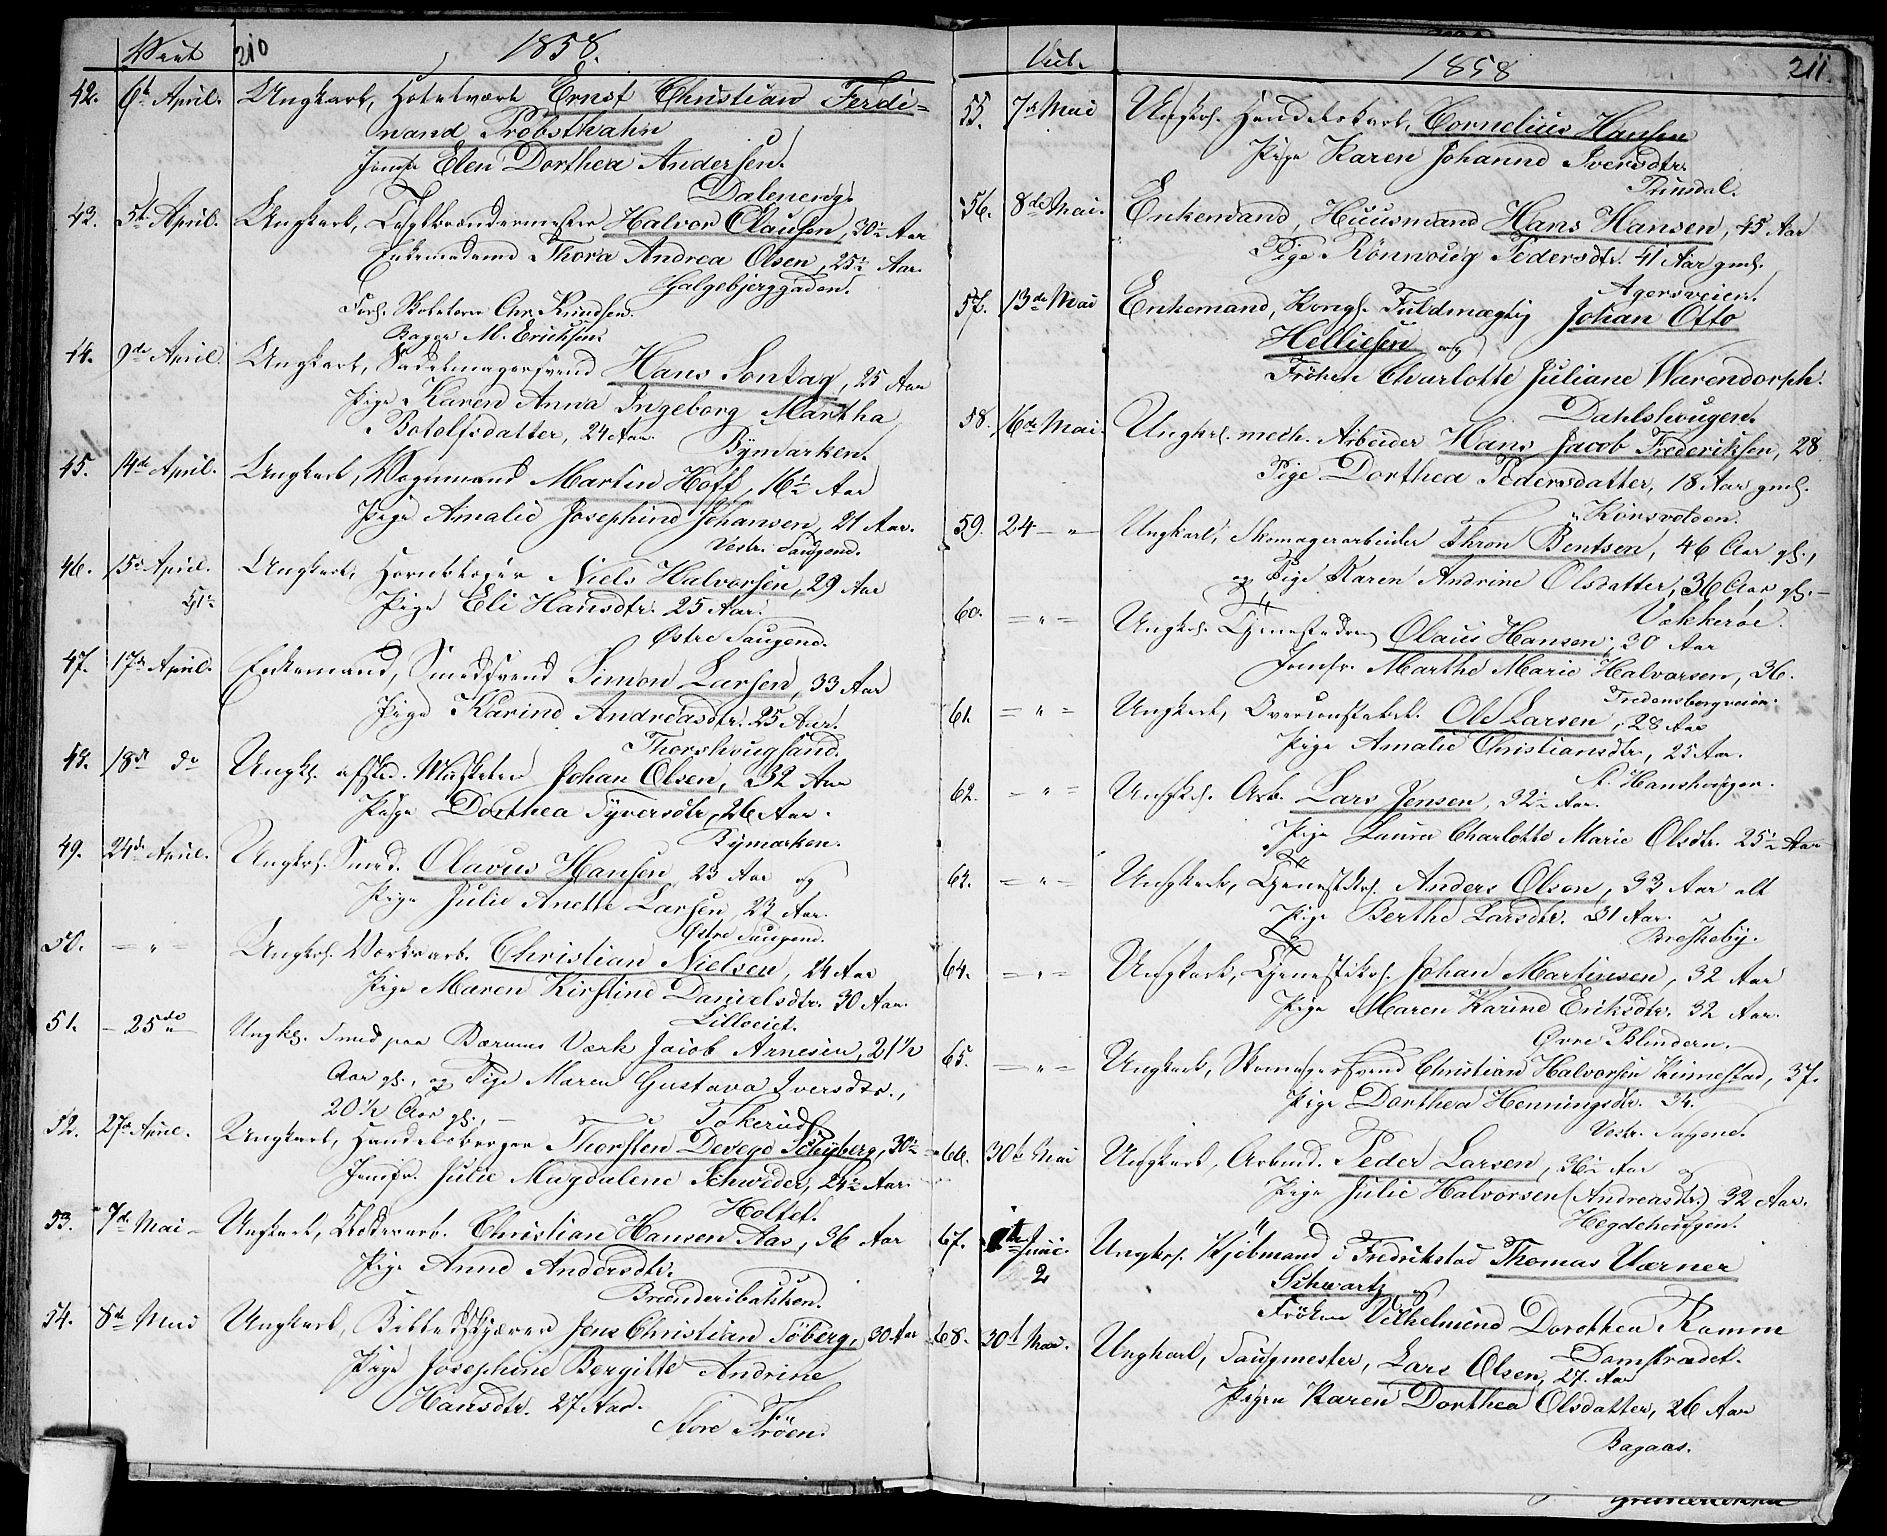 210
1858.
42. 6te April. Ungkarl, Hotelvært Ernst Christian Ferdi=
nand Probsthahn
Jomfr. Elen Dorthea Andersen.
Dælenengn
43. 5te April. Ungkarl, Halvor Olausen, 30½ Aar
Enkemadame Thora Andrea Olsen, 25½ Aar.
Galgebjerggaden.
Forl. Chr. Knudsen.
Bager M. Erichsen.
44. 9de April. Ungkarl, Sadelmagersvend Hans Sontag, 25 Aar
Pige Karen Anna Ingeborg Martha
Botolfsdatter, 24 Aar.
Bymarken.
45. 14de April. Ungkarl, Vognmand Martin Hoff, Aar
Pige Amalie Josephine Johansen, 21 Aar.
Vestr. Saugene.
46. 15de April. Ungkarl, Niels Halvorsen, 29 Aar
Pige Eli Hansdtr. 25 Aar.
Østre Saugene.
47. 17de April. Enkemand, Smedsvend Simon Larsen, 33 Aar
Pige Karine Andreasdtr. 25 Aar.
Thorshougsand.
48. 18de do Ungkl. afsked. Musketer Johan Olsen, 32 Aar
Pige Dorthea Syversdtr, 26 Aar.
Bymarken.
49. 24de April. Ungkrl. Smed. Olavus Hansen 23 Aar og
Pige Julie Anette Larsen, 23 Aar.
Østre Saugene.
50. — " — Ungkrl. Værksarb. Christian Nielsen, 24 Aar
Pige Maren Kirstine Danielsdtr. 30 Aar.
Lilloeiet.
51. – 25de Ungkl. Smed paa Bærums Værk Jacob Arnesen, 21½
Aar gl., og Pige Maren Gustava Iversdtr.,
20½ Aar gl., —
Tokerud
52. 27de April. Ungkarl, Handelsborger Thorsten Devego Schyberg, 30½
Jomfr. Julie Magdalene Schweder, 24½ Aar.
Holtet.
53. 7de Mai – Ungkarl, Christian Hansen Aas, 36 Aar
Pige Anne Andersdtr.
Brænderibakken.
54. 8de Mai Ungkarl, Billedskjærer Jens Christian Söberg, 30 Aar
Pige Josephine Bergitte Andrine
Hansdtr. 27 Aar.
Store Fröen.
1858
211.
55. 7de Mai Ungkrl. Handelskarl, Cornelius Hansen
Pige Karen Johanne Iversdtr.
56. 8de Mai. Enkemand, Huusmand Hans Hansen, 45 Aar
Pige Rönnoug Pedersdtr. 41 Aar gml.
Agersveien.
57. 13de Mai Enkemand, Kongl. Fuldmægtig Johan Otto
Helliesen og
Fröken Charlotte Juliane Warendorph.
Dahlshougen.
58. 16de Mai. Ungkrl. mech. Arbeider Hans Jacob Frederiksen, 28
Pige Dorthea Pedersdatter, 18 Aar gml.
Korsvolden.
59. 24 – " – Ungkarl, Skomagerarbeider Thron Bentsen, 46 Aar gl.,
og Pige Karen Andrine Olsdatter, 36 Aar gl. –
Vækkeröe.
60. — " — Ungkrl. Tjenestedreng Olaus Hansen, 30 Aar
Jomfr. Marthe Marie Halvorsen, 36.
Fredensborgveien.
61. — " — Ungkarl, Ole Larsen, 28 Aar
Pige Amalie Christiansdtr, 25 Aar.
l. Hanshougen.
62. — " — Ungkrl. Arb. Lars Jensen, 32½ Aar.
Pige Laura Charlotte Marie Olsdtr. 25½ Aar
63. — " — Ungkarl, Tjenestkrl. Anders Olsen, 33 Aar alt
Pige Berthe Larsdtr. 31 Aar.
Breskeby.
64. — " — Ungkarl, Tjenestkrl. Johan Martinsen, 32 Aar
Pige Maren Karine Eriksdtr. 32 Aar.
Övre Blindern.
65. — " — Ungkarl, Skomagersvend Christian Halvorsen Kimestad, 37.
Pige Dorthea Henningsdtr. 34.
Vestr. Sagene.
66. 30te Mai Ungkarl, Arbmd. Peder Larsen, 36½ Aar
Pige Julie Halvorsen (Andreasdtr.) 32 Aar.
Hegdehougen.
67. Juni. 2 Ungkrl. i Fredrikstad Thomas Værner
Schwartz og
Fröken Vilhelmine Dorothea Ramm
Damstrædet.
68. 30te Mai. Ungkarl, Saugmester, Lars Olsen, 27 Aar
Pigen Karen Dorthea Olsdatter, 26 Aar
Bagaas.